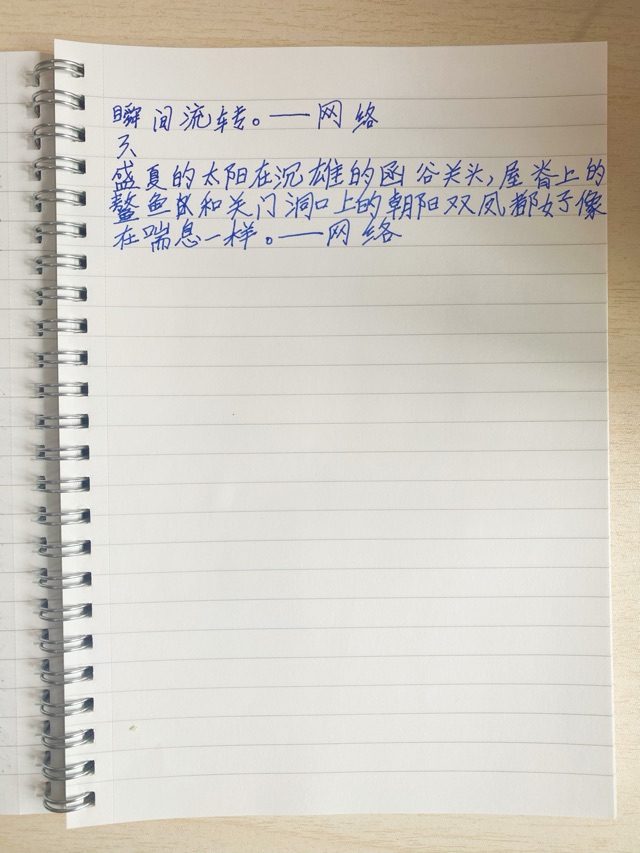 瞬间流转。——网络
盛夏的太阳在沉雄的函谷关头,屋脊上的
鳌鱼和关门洞口上的朝阳双凤都好像
在喘息一样。——网络